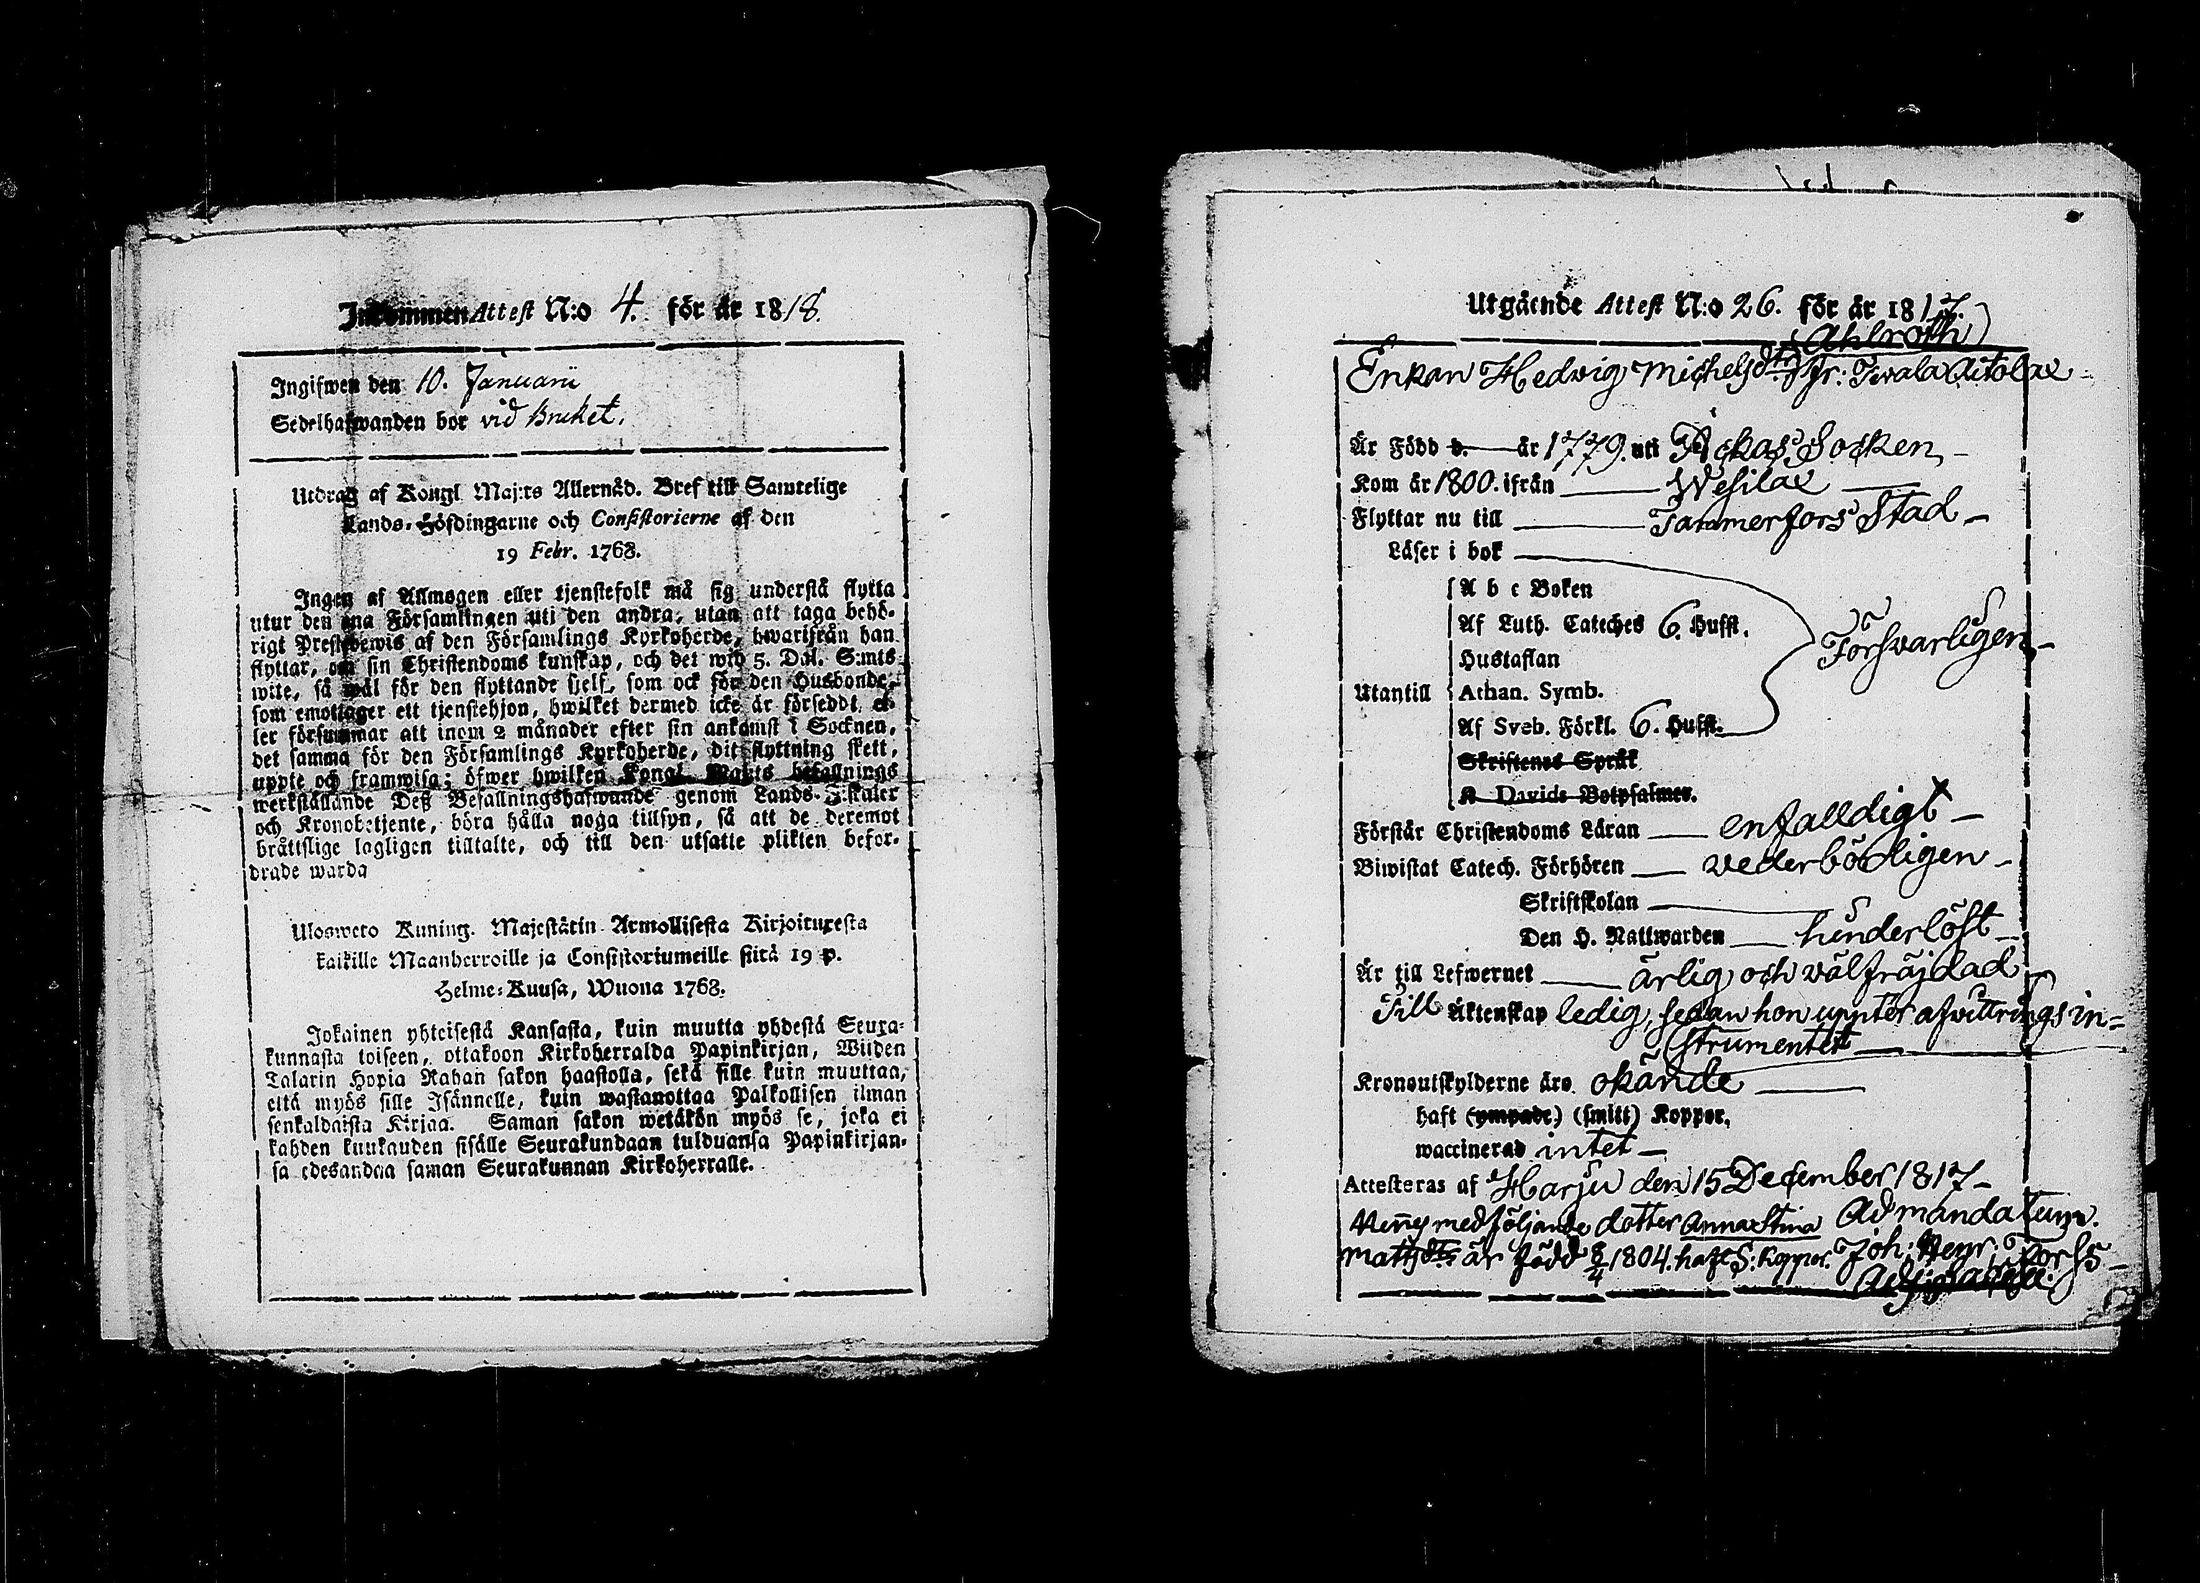 Inkommen Attest N:o 4. för år 1818.
Ingifwen den 10. Januarii
Sedelhafwanden bor vid Bruket.
Utdrag af Kongl. Maj:ts Allernåd. Bref till Samtelige
Lands-Höfdingarne och Consistorierne af den
19 Febr. 1768.
Ingen af Allmogen eller tjenstefolk må sig understå flytta
utur den ena Församlingen uti den andra, utan att taga behö-
rigt Prestbewis af den Församlings Kyrkoherde, hwarifrån han
flyttar, om sin Christendoms kunskap, och det wid 5. Dal. S:mts
wite, så wäl för den flyttande sjelf, som ock för den Husbonde,
som emottager ett tjenstehjon, hwilket dermed icke är försedt, el-
ler försummar att inom 2 månader efter sin ankomst i Socknen,
det samma för den Församlings Kyrkoherde, dit flyttning skett,
uppte och framwisa; öfwer hwilken Kongl. Maj:ts befallnings
werkställande Deß Befallningshafwande genom Lands-Fiskaler
och Kronobetjente, böra hålla noga tillsyn, så att de deremot
bråttslige lagligen tilltalte, och till den utsatte plikten befor-
drade warda
Ulosweto Kuning. Majestätin Armollisesta Kirjoituxesta
kaikille Maanherroille ja Consistoriumeille siitä 19 p.
Helme-Kuusa, Wuona 1768.
Jokainen yhteisestä Kansasta, kuin muutta yhdestä Seura-
kunnasta toiseen, ottakoon Kirkoherralda Papinkirjan, Wiiden
Talarin Hopia Rahan sakon haastolla, sekä sille kuin muuttaa,
että myös sille Isännelle, kuin wastanottaa Palkollisen ilman
senkaldaista Kirjaa. Saman sakon wetäkön myös se, joka ei
kahden kuukauden sisälle Seurakundaan tulduansa Papinkirjan-
sa edesandaa saman Seurakunnan Kirkoherralle.
Utgående Attest N:o 26. för år 1817.
(Ahlroth)
Enkan Hedvig Michelsdtr fr: Tevala Aitolax
Är Född d. — år 1779. uti Ackas Socken
Kom år 1800. ifrån — Wesilax —
Flyttar nu till — Tammerfors Stad
Läser i bok —
A b c Boken
Af Luth. Cateches 6. Hufst.
Hustaflan
Försvarligen
Utantill Athan. Symb.
Af Sveb. Förkl. 6. Hufst.
Skriftenes Språk
K Davids Botpsalmer.
Förstår Christendoms Läran — enfalldigt
Biwistat Catech. Förhören — vederbörligen
Skriftskolan —
Den H. Nattwarden — hinderlöst
Är till Lefwernet — ärlig och välfräjdad
Till Äktenskap ledig, sedan hon uppter afvittrings in=
strumentet
Kronoutskylderne äro okände
haft (ympade) (smitt) Koppor.
waccinerad intet
Attesteras af Harju den 15 December 1817
medföljande dotter Anna Stina Ad mandatum.
Mattsdtr är född 8/4 1804. haft S: Koppor. Joh: Henr: Forss